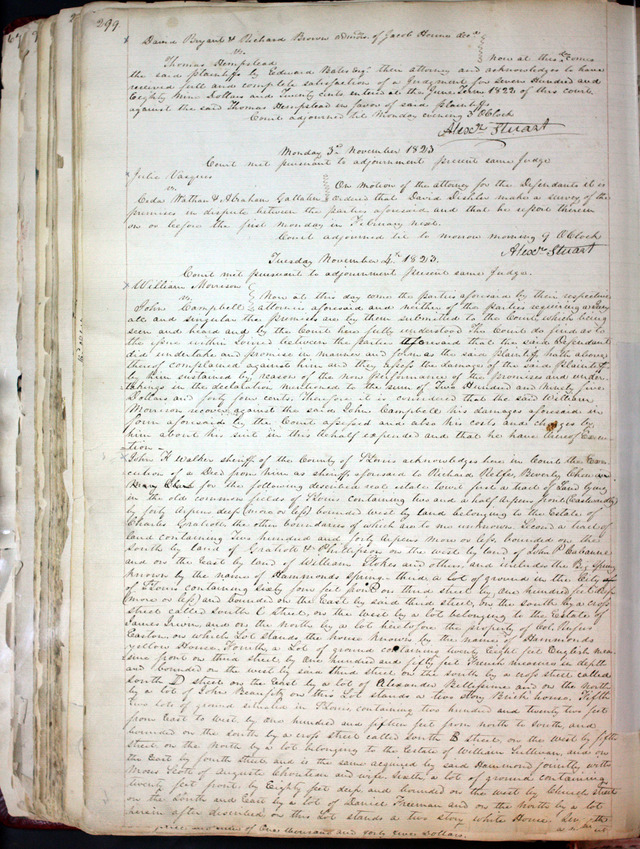 299
David Bryant & Richard Brown admrs. of Jacob Horine decd.
vs.
Thomas Hempstead Now at this day comes
the said plaintiffs by Edward Bates Esqr. their attorney and acknowledges to have
received full and complete satisfaction of a Judgment for Seven Hundred and
Eighty Nine Dollars and Twenty cents entered at the June Term 1822 of this court
against the said Thomas Hempstead in favor of said plaintiffs
Court adjourned till Monday evening 3 OClock
Alexr. Stuart
Monday 3d. November 1823
Court met pursuant to adjournment present same Judge
Julie Vasques
v. On motion of the attorney for the Defendants it is
& Abraham Gallatin ordered that David make a survey of the
premises in dispute between the parties aforesaid and that he report therein
on or before the first monday in February next.
Court adjourned til to morrow morning 9 OClock
Alexr. Stuart
Tuesday November 4th. 1823.
Court met pursuant to adjournment present same Judge.
William Morrison
v. Now at this day come the parties aforesaid by their respective
John Campbell attornies aforesaid and neither of the parties requiring
all and singular the premises are by them submitted to the Court, which being
seen and heard and by the Court here fully understood The Court do find as to
the issue within Joined between the parties aforesaid that the said Defendant
did undertake and promise in manner and form as the said plaintiff hath above
thereof complained against him and they assess the damage of the said plaintiff
by him sustained by reason of the non performance of the promises and under
takings in the declaration mentioned to the sum of Two Hundred and Ninety five
Dollars and forty four cents. Therefore it is considered that the said William
Morrison recover against the said John Campbell his damages aforesaid in
form aforesaid by the Court assessed and also his costs and charges by
him about his suit in this behalf expended and that he have thereof Execu
tion.
John K Walker sheriff of the County of St Louis acknowledges here in Court the Exe
cution of a Deed from him as sheriff aforesaid to Richard Relfe, Beverly Chew
for the following described real estate to wit, first a tract of Land lying
in the old common fields of St Louis containing two and a half arpens front (Eastwardly)
by forty arpens deep (more or less) bounded west by land belonging to the Estate of
Charles Gratiott the other boundaries of which are to me unknown. Second a tract of
land containing Two hundred and forty arpens more or less, bounded on the
South by land of Gratiott & Phillipson on the west by land of John P. Cabanne
and on the East by land of William Stokes and others, and includes the Big Spring
known by the name of Hammonds Spring. third a lot of ground in the City
of St Louis containing sixty four feet front on third street by one hundred feet deep
(more or less) and bounded on the East by said third street, on the South by a cross
street called South C street, on the west by a lot belonging to the Estate of
James Irwin and on the North by a lot heretofore the property of Col. Rufus
Easton, on which Lot stands the house known by the name of Hammonds
yellow House. Fourth, a Lot of ground containing twenty Eight feet English mea
sure front on third street by One hundred and fifty feet French measure in depth
and bounded on the west by said third street on the South by a cross street called
South D street on the East by a lot of Alexander Bellissime and on the North
by a lot of John on this Lot stands a two story Brick house, Fifth
two lots of ground situated in St Louis containing two hundred and twenty two feet
from East to west by two hundred and fifteen feet from north to South, and
bounded on the South by a cross street called South B street, on the west by fifth
street on the North by a lot belonging to the Estate of William Sullivan, and on
the East by fourth street and is the same acquired by said Hammond jointly with
Moses Scott of Auguste Chouteau and wife, Sixth, a lot of ground containing
twenty feet front, by Eighty feet deep and bounded on the west by Church street
on the South and East by a lot of Daniel Freeman and on the North by a lot
herein after described, on this lot stands a two story white House,
One thousand and forty five Dollars.